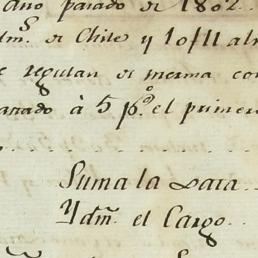 año pasado de 1802.
dm.ˢ de Chile y 10/11 alm
e regulan de merma con
al 5 p.º el primero
Suma la Data
Ydm el Cargo